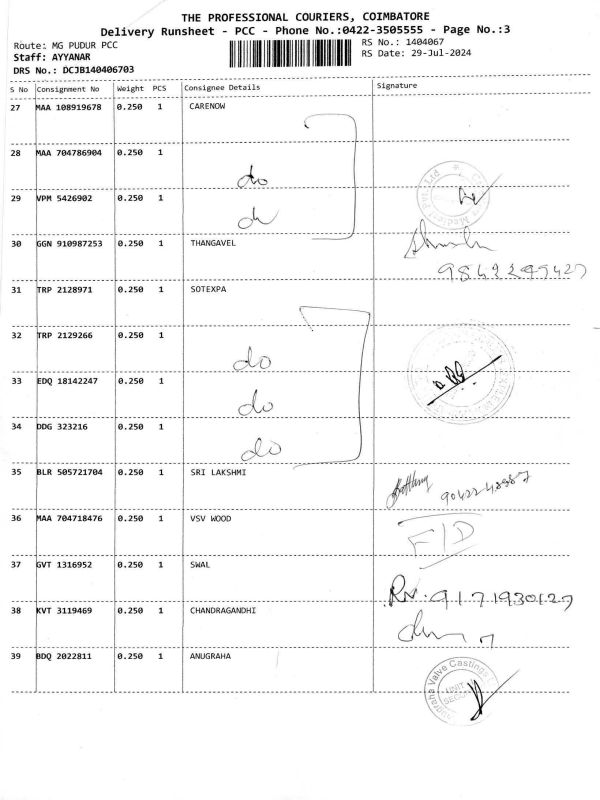 THE PROFESSIONAL COURIERS, COIMBATORE
Delivery Runsheet - PCC - Phone No.:0422-3505555 - Page No.:3
Route: MG PUDUR PCC
RS No.: 1404067
Staff: AYYANAR
RS Date: 29-Jul-2024
DRS No.: DCJB140406703
S No Consignment No Weight PCS Consignee Details Signature
27 MAA 108919678 0.250 1 CARENOW
28 MAA 704786904 0.250 1
do
29 VPM 5426902 0.250 1
do
30 GGN 910987253 0.250 1 THANGAVEL
31 TRP 2128971 0.250 1 SOTEXPA
32 TRP 2129266 0.250 1
do
33 EDQ 18142247 0.250 1
do
34 DDG 323216 0.250 1
do
35 BLR 505721704 0.250 1 SRI LAKSHMI
36 MAA 704718476 0.250 1 VSV WOOD
F/D
37 GVT 1316952 0.250 1 SWAL
9171930127
38 KVT 3119469 0.250 1 CHANDRAGANDHI
39 BDQ 2022811 0.250 1 ANUGRAHA
Valve Castings
UNIT